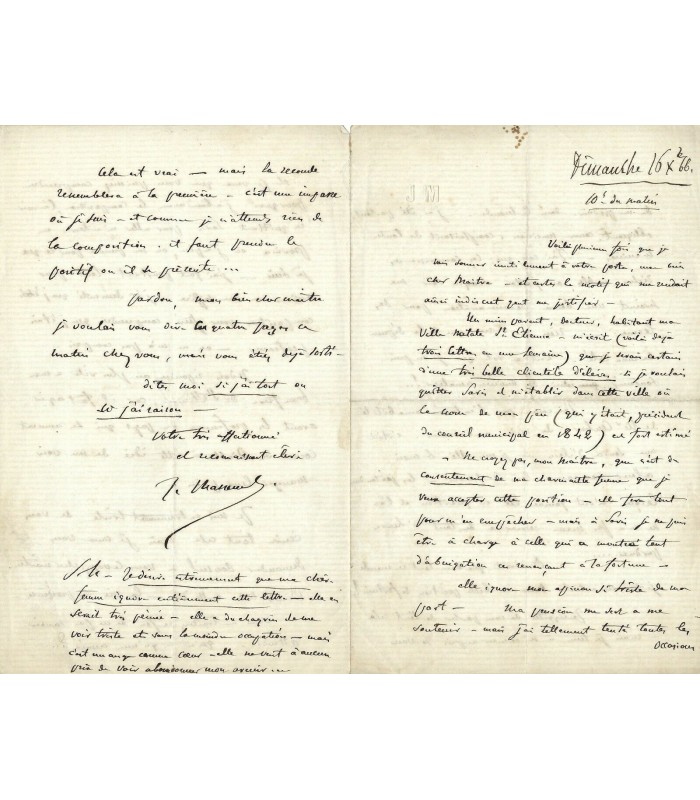 Dimanche 16 Xbre 66.
10h du matin
Voilà plusieurs fois que je
vais sonner inutilement à votre porte, mon bien
cher Maître – et certes le motif qui me rendait
ainsi indiscret peut me justifier –
Un mien parent, docteur, habitant ma
Ville Natale St Etienne – m'écrit (voilà déjà
trois lettres en une semaine) que je serais certain
d'une très belle clientèle d'élèves si je voulais
quitter Paris et m'établir dans cette ville où
le nom de mon père (qui y était, président
du conseil municipal en 1842) est fort estimé
– Ne croyez pas, mon Maître, que c'est du
consentement de ma charmante femme que je
veux accepter cette position – elle fera tout
pour m'en empêcher – mais à Paris je ne puis
être à charge à celle qui a montré tant
d'abnégation en renonçant à la fortune –
elle ignore mon affection si triste de ma
part – Ma pension me sert à me
soutenir – mais j'ai tellement tenté toutes les
occasions
Cela est vrai – mais la seconde
ressemblera à la première – c'est une impasse
où je suis – et comme je n'attends rien de
la composition. il faut prendre le
positif où il se présente ...
Pardon, mon bien cher maître
je voulais vous dire les quatre pages ce
matin chez vous, mais vous étiez déjà sorti –
dites moi si j'ai tort ou
si j'ai raison –
Votre très affectionné
et reconnaissant élève
J. Massenet.
je désire extrêmement que ma chère
femme ignore entièrement cette lettre – elle en
serait très peinée – elle a du chagrin de me
voir triste et sans la moindre occupation – mais
c'est un ange comme cœur – elle ne veut à aucun
prix de voir abandonner mon avenir ...